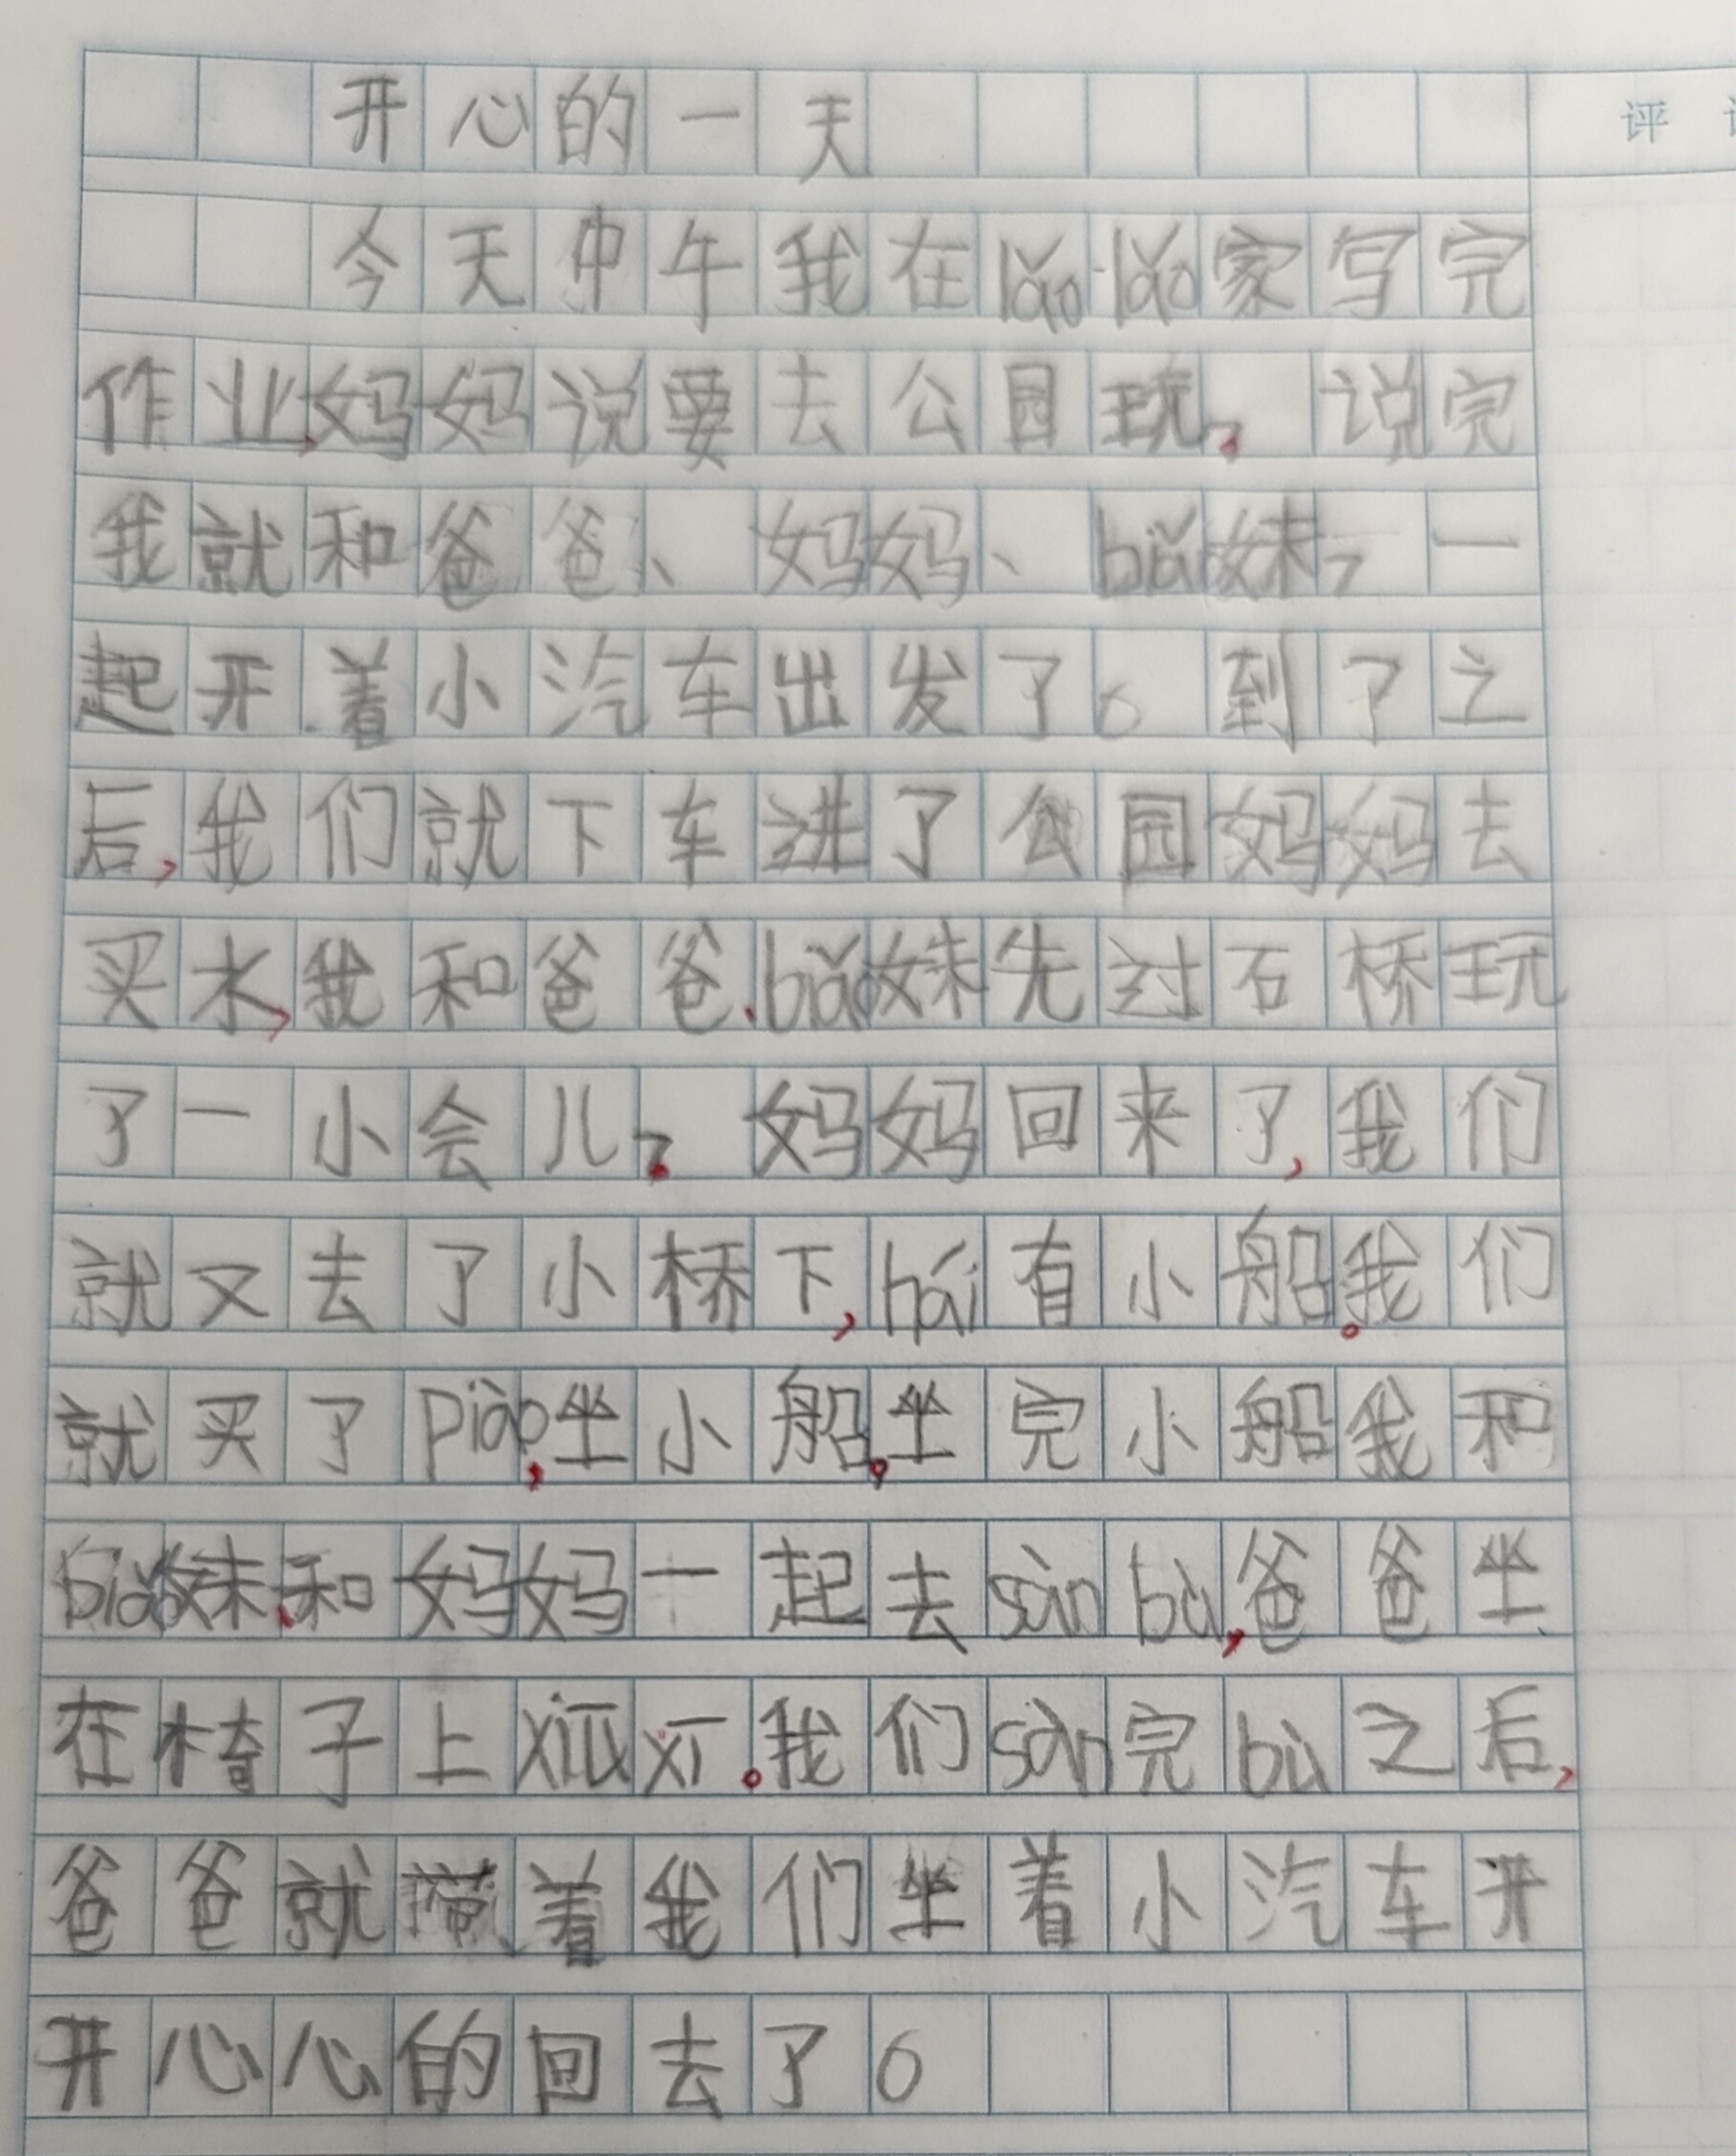 开心的一天
评
今天中午我在lǎo lao家写完
作业,妈妈说要去公园玩。说完
我就和爸爸、妈妈、biǎo妹,一
起开着小汽车出发了。到了之
后,我们就下车进了公园妈妈去
买水,我和爸爸、biǎo妹先过石桥玩
了一小会儿。妈妈回来了,我们
就又去了小桥下,hái有小船。我们
就买了piào,坐小船。坐完小船我和
biǎo妹、和妈妈一起去sàn bù,爸爸坐
在椅子上xiū xi。我们sàn完bù之后,
爸爸就带着我们坐着小汽车开
开心心的回去了。